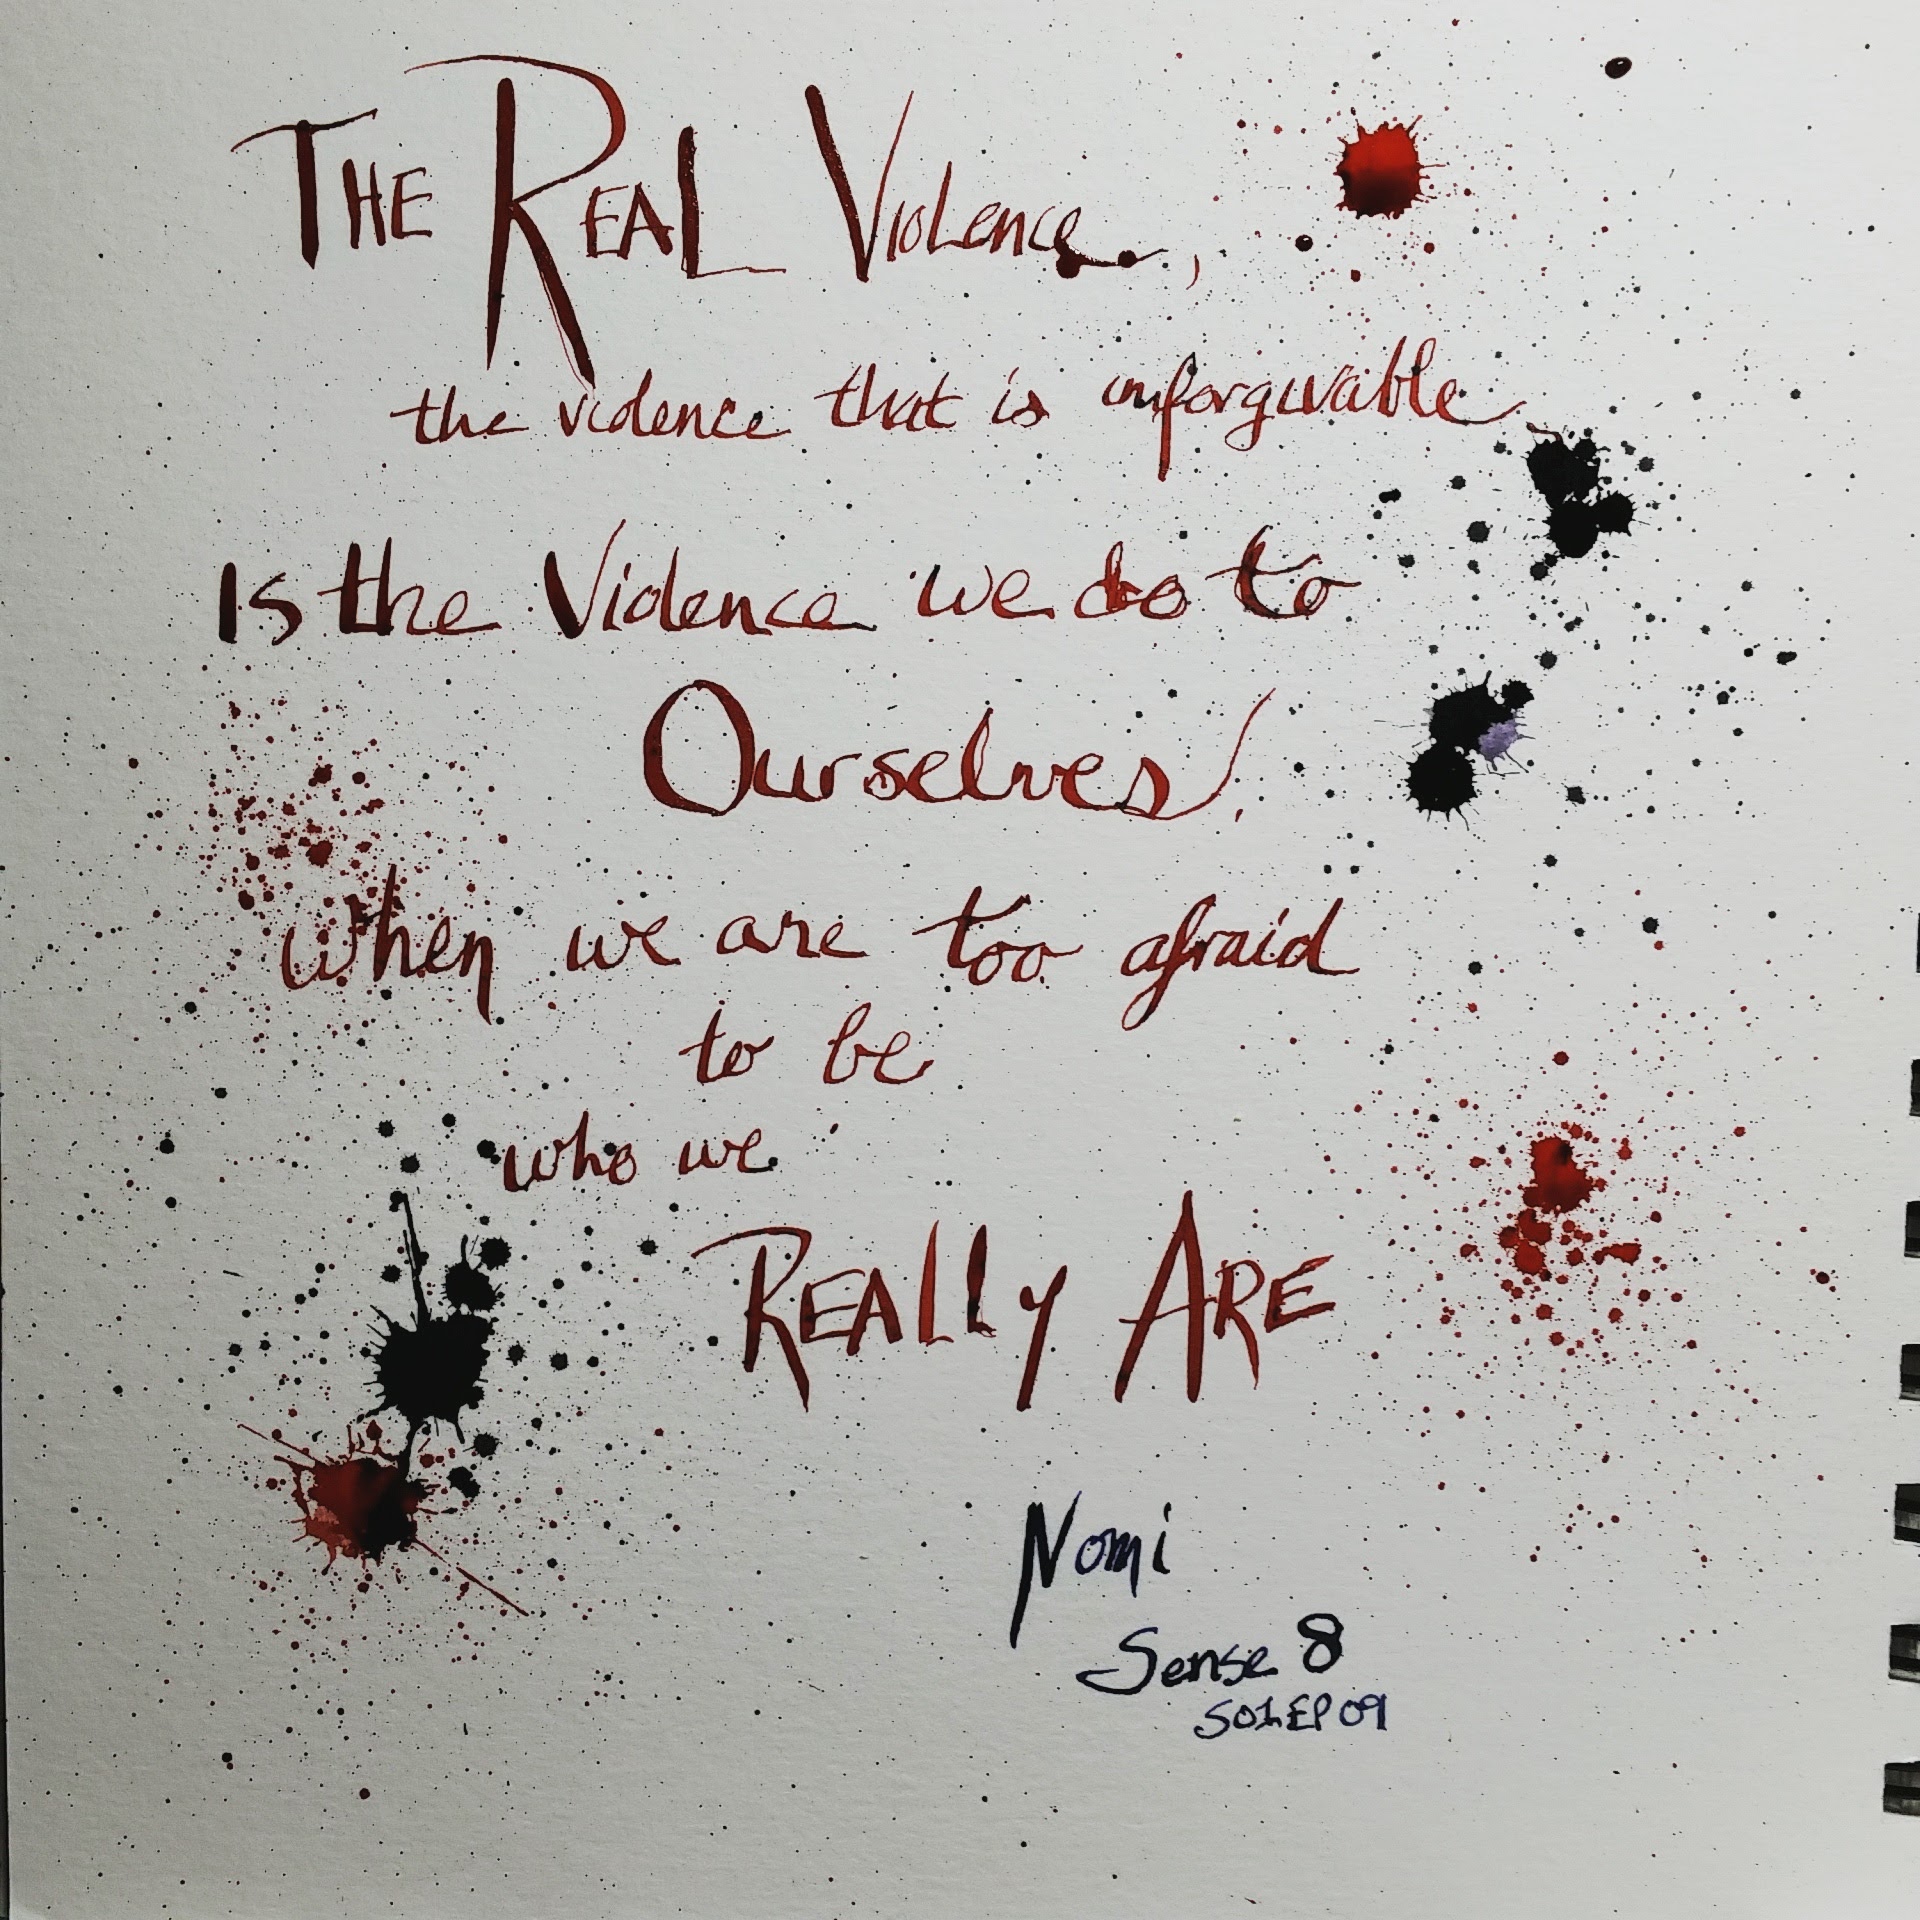 THE REAL Violence,
the violence that is unforgivable
Is the Violence we do to
Ourselves,
when we are too afraid
to be
who we
REALLY ARE
Nomi
Sense 8
S01EP09